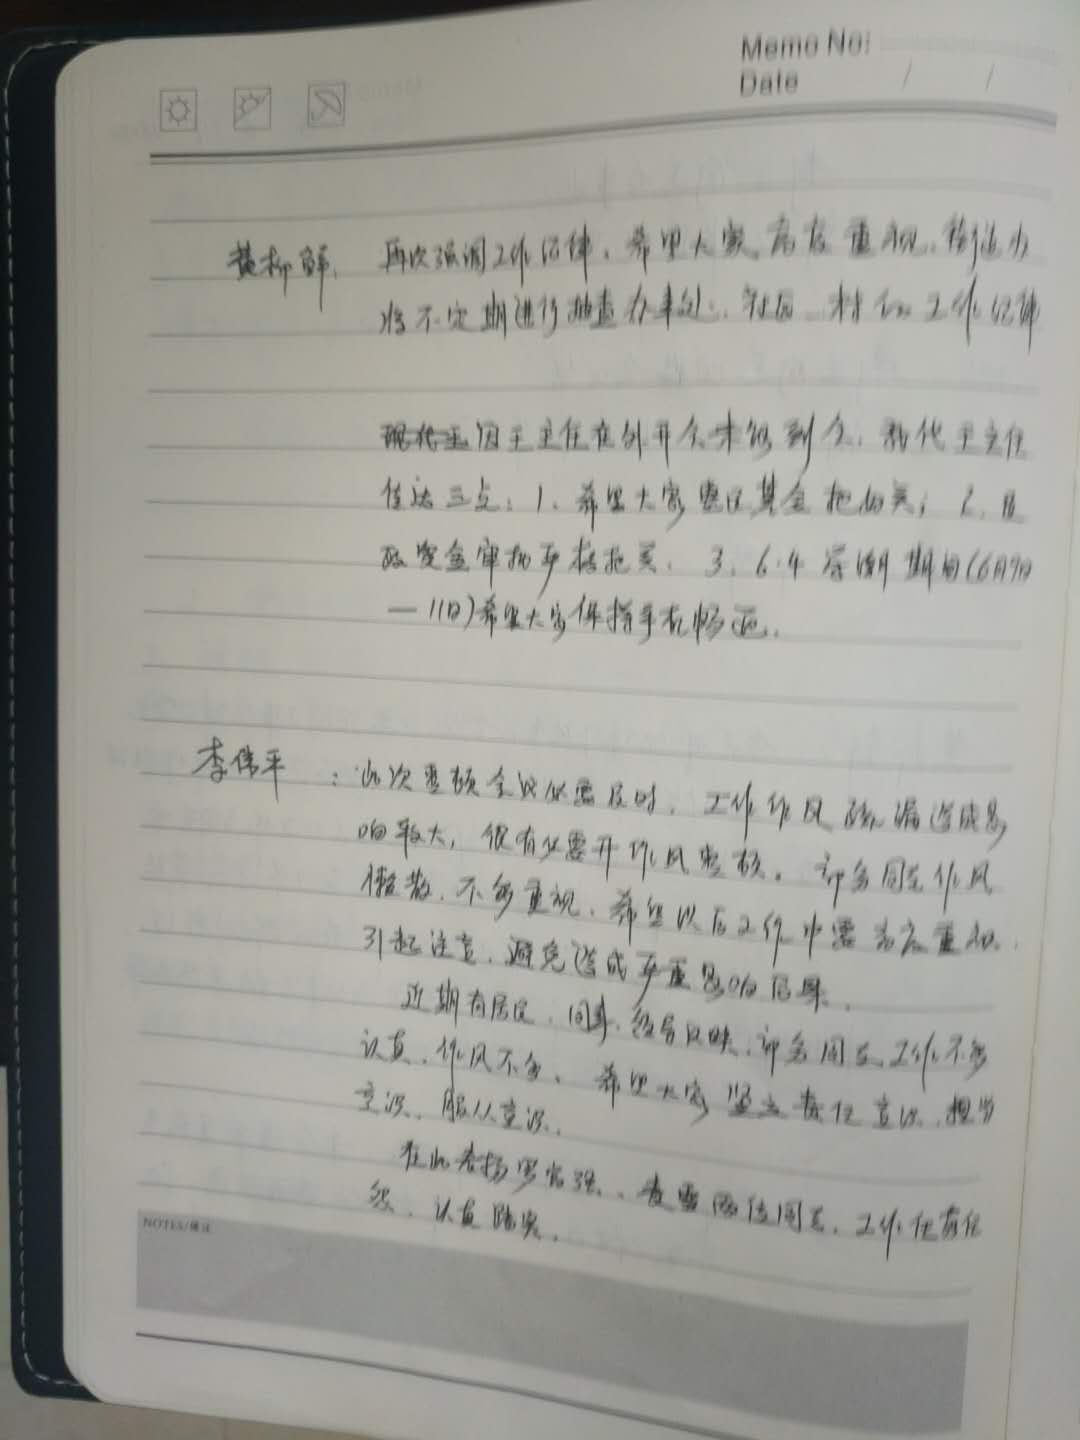 Memo No:
Date / /
黄柳鲜: 再次强调工作纪律，希望大家高度重视，街道办
将不定期进行抽查办事处、社区、村的工作纪律
现代王因王主任在外开会未能到会，我代王主任
传达三点：1、希望大家惠民资金把好关；2、
政资金审批严格把关。3、6.4 学潮期间(6月9日
—11日)希望大家保持手机畅通。
李伟平：此次整顿会议必需及时，工作作风疏漏造成影
响较大，很有必要开作风整顿。部分同志作风
懒散，不够重视，希望以后工作中需高度重视，
引起注意，避免造成严重影响后果。
近期有居民、同事、领导反映，部分同志工作不够
认真，作风不实，希望大家坚立责任意识、担当
意识、服从意识。
在此表扬罗富强、两位同志，工作任劳任
怨、认真踏实。
NOTES/備注